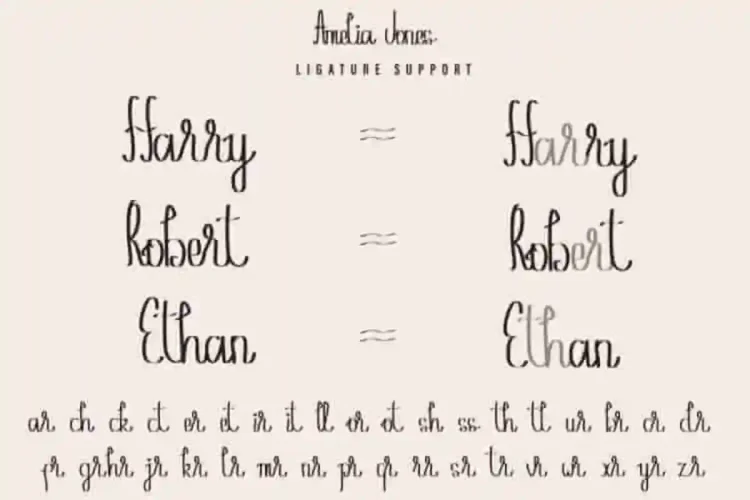 Amelia Jones
LIGATURE SUPPORT
Harry ≈ Harry
Robert ≈ Robert
Ethan ≈ Ethan
ar ch ck ct er et ir it ll or ot sh ss th tl ur br cr dr
fr gr hr jr kr lr mr nr pr qr rr sr tr vr wr xr yr zr